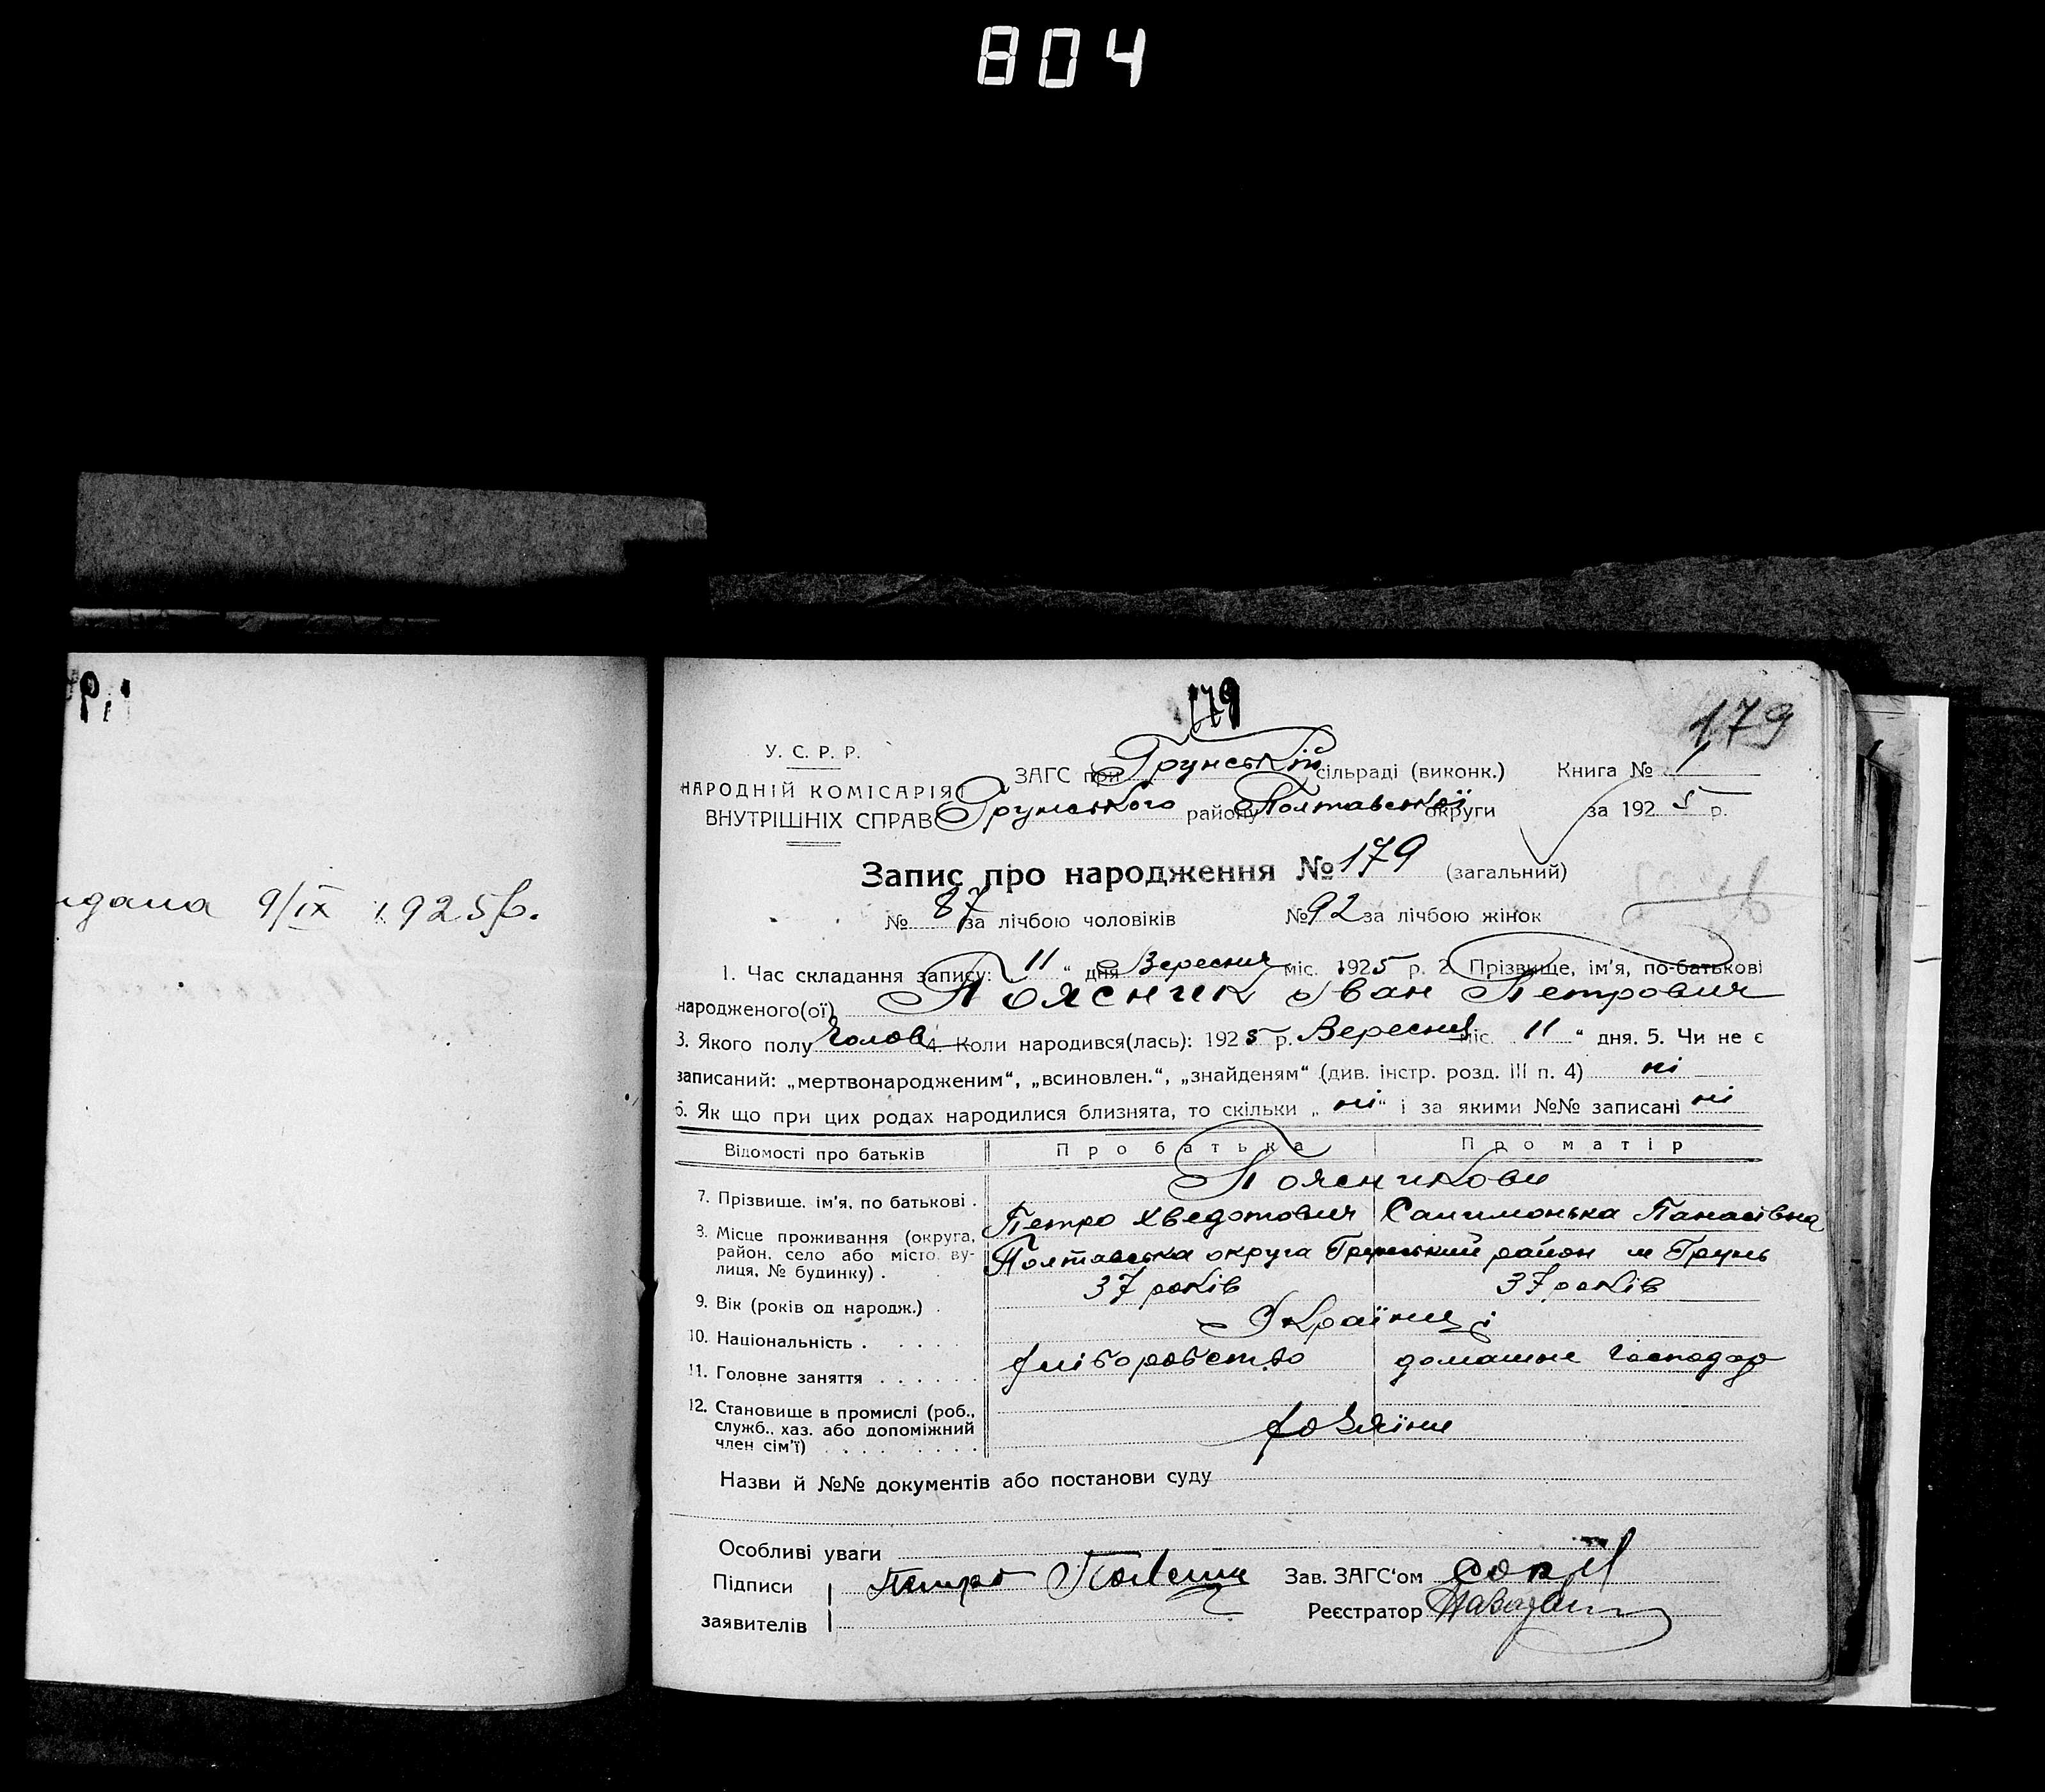 804
дана 9/IX 1925 р.
179
179
У. С. Р. Р.
НАРОДНІЙ КОМІСАРІЯТ
ВНУТРІШНІХ СПРАВ
ЗАГС при Грунській сільраді (виконк.)
Грунського району Полтавської округи
Книга № 1
за 1925 р.
Запис про народження № 179 (загальний)
№ 87 за лічбою чоловіків № 92 за лічбою жінок
1. Час складання запису: 11 " дня Вересня міс. 1925 р. 2. Прізвище, ім'я, по-батькові
народженого(ої) Поясник Іван Петрович
3. Якого полу Чолов 4. Коли народився(лась): 1925 р. Вересня міс. 11 " дня. 5. Чи не є
записаний: „мертвонародженим", „всиновлен.", „знайденям" (див. інстр. розд. III п. 4) ні
6. Як що при цих родах народилися близнята, то скільки „ ні " і за якими №№ записані ні
Відомості про батьків Про батька Про матір
7. Прізвище, ім'я, по батькові . Поясникови
Петро Хведотович Салимонька Панасівна
8. Місце проживання (округа, район, село або місто, вулиця, № будинку) . Полтавська округа Грунський район м Грунь
9. Вік (років од народж.) . 37 років 37 років
10. Національність . . . . . . Українці
11. Головне заняття . . . . . . хліборобство домашнє господар
12. Становище в промислі (роб.,
служб., хаз. або допоміжний
член сім'ї) . . . . . . . . . хозяїни
Назви й №№ документів або постанови суду
Особливі уваги
Підписи
заявителів
Петро Поясник
Зав. ЗАГС'ом
Реєстратор